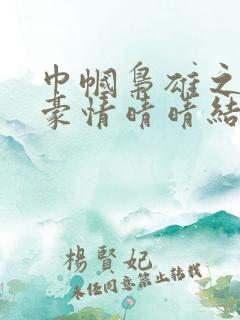 巾帼梟雄之
豪情晴晴結
楊賢妃
未任同意禁止转載